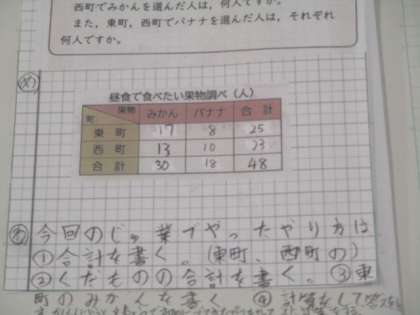 西町でみかんを選んだ人は、何人ですか。
また，東町，西町でバナナを選んだ人は，それぞれ
何人ですか。
昼食で食べたい果物調べ（人）
町 果物 みかん バナナ 合計
東町 17 8 25
西町 13 10 23
合計 30 18 48
今回のじゅ業でやったやり方は
①合計を書く。（東町、西町の）
②くだものの合計を書く。③東
町のみかんを書く ④計算をして答えを